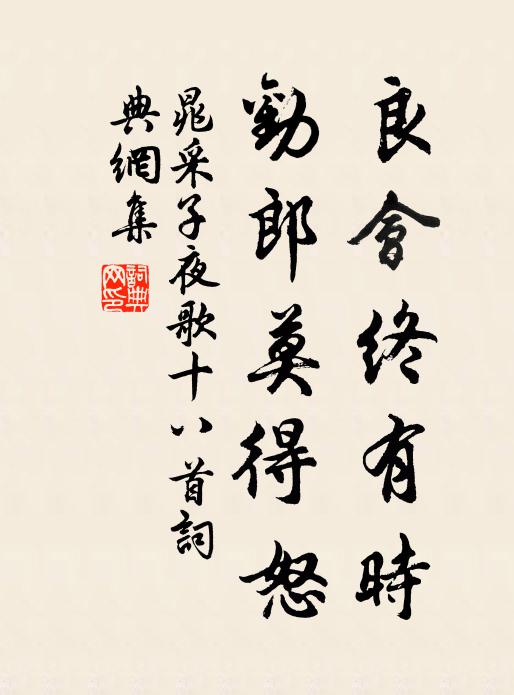 良會終有時
勸郎莫得怒
晁采子夜歌十八首詞
典網集
詞典網印